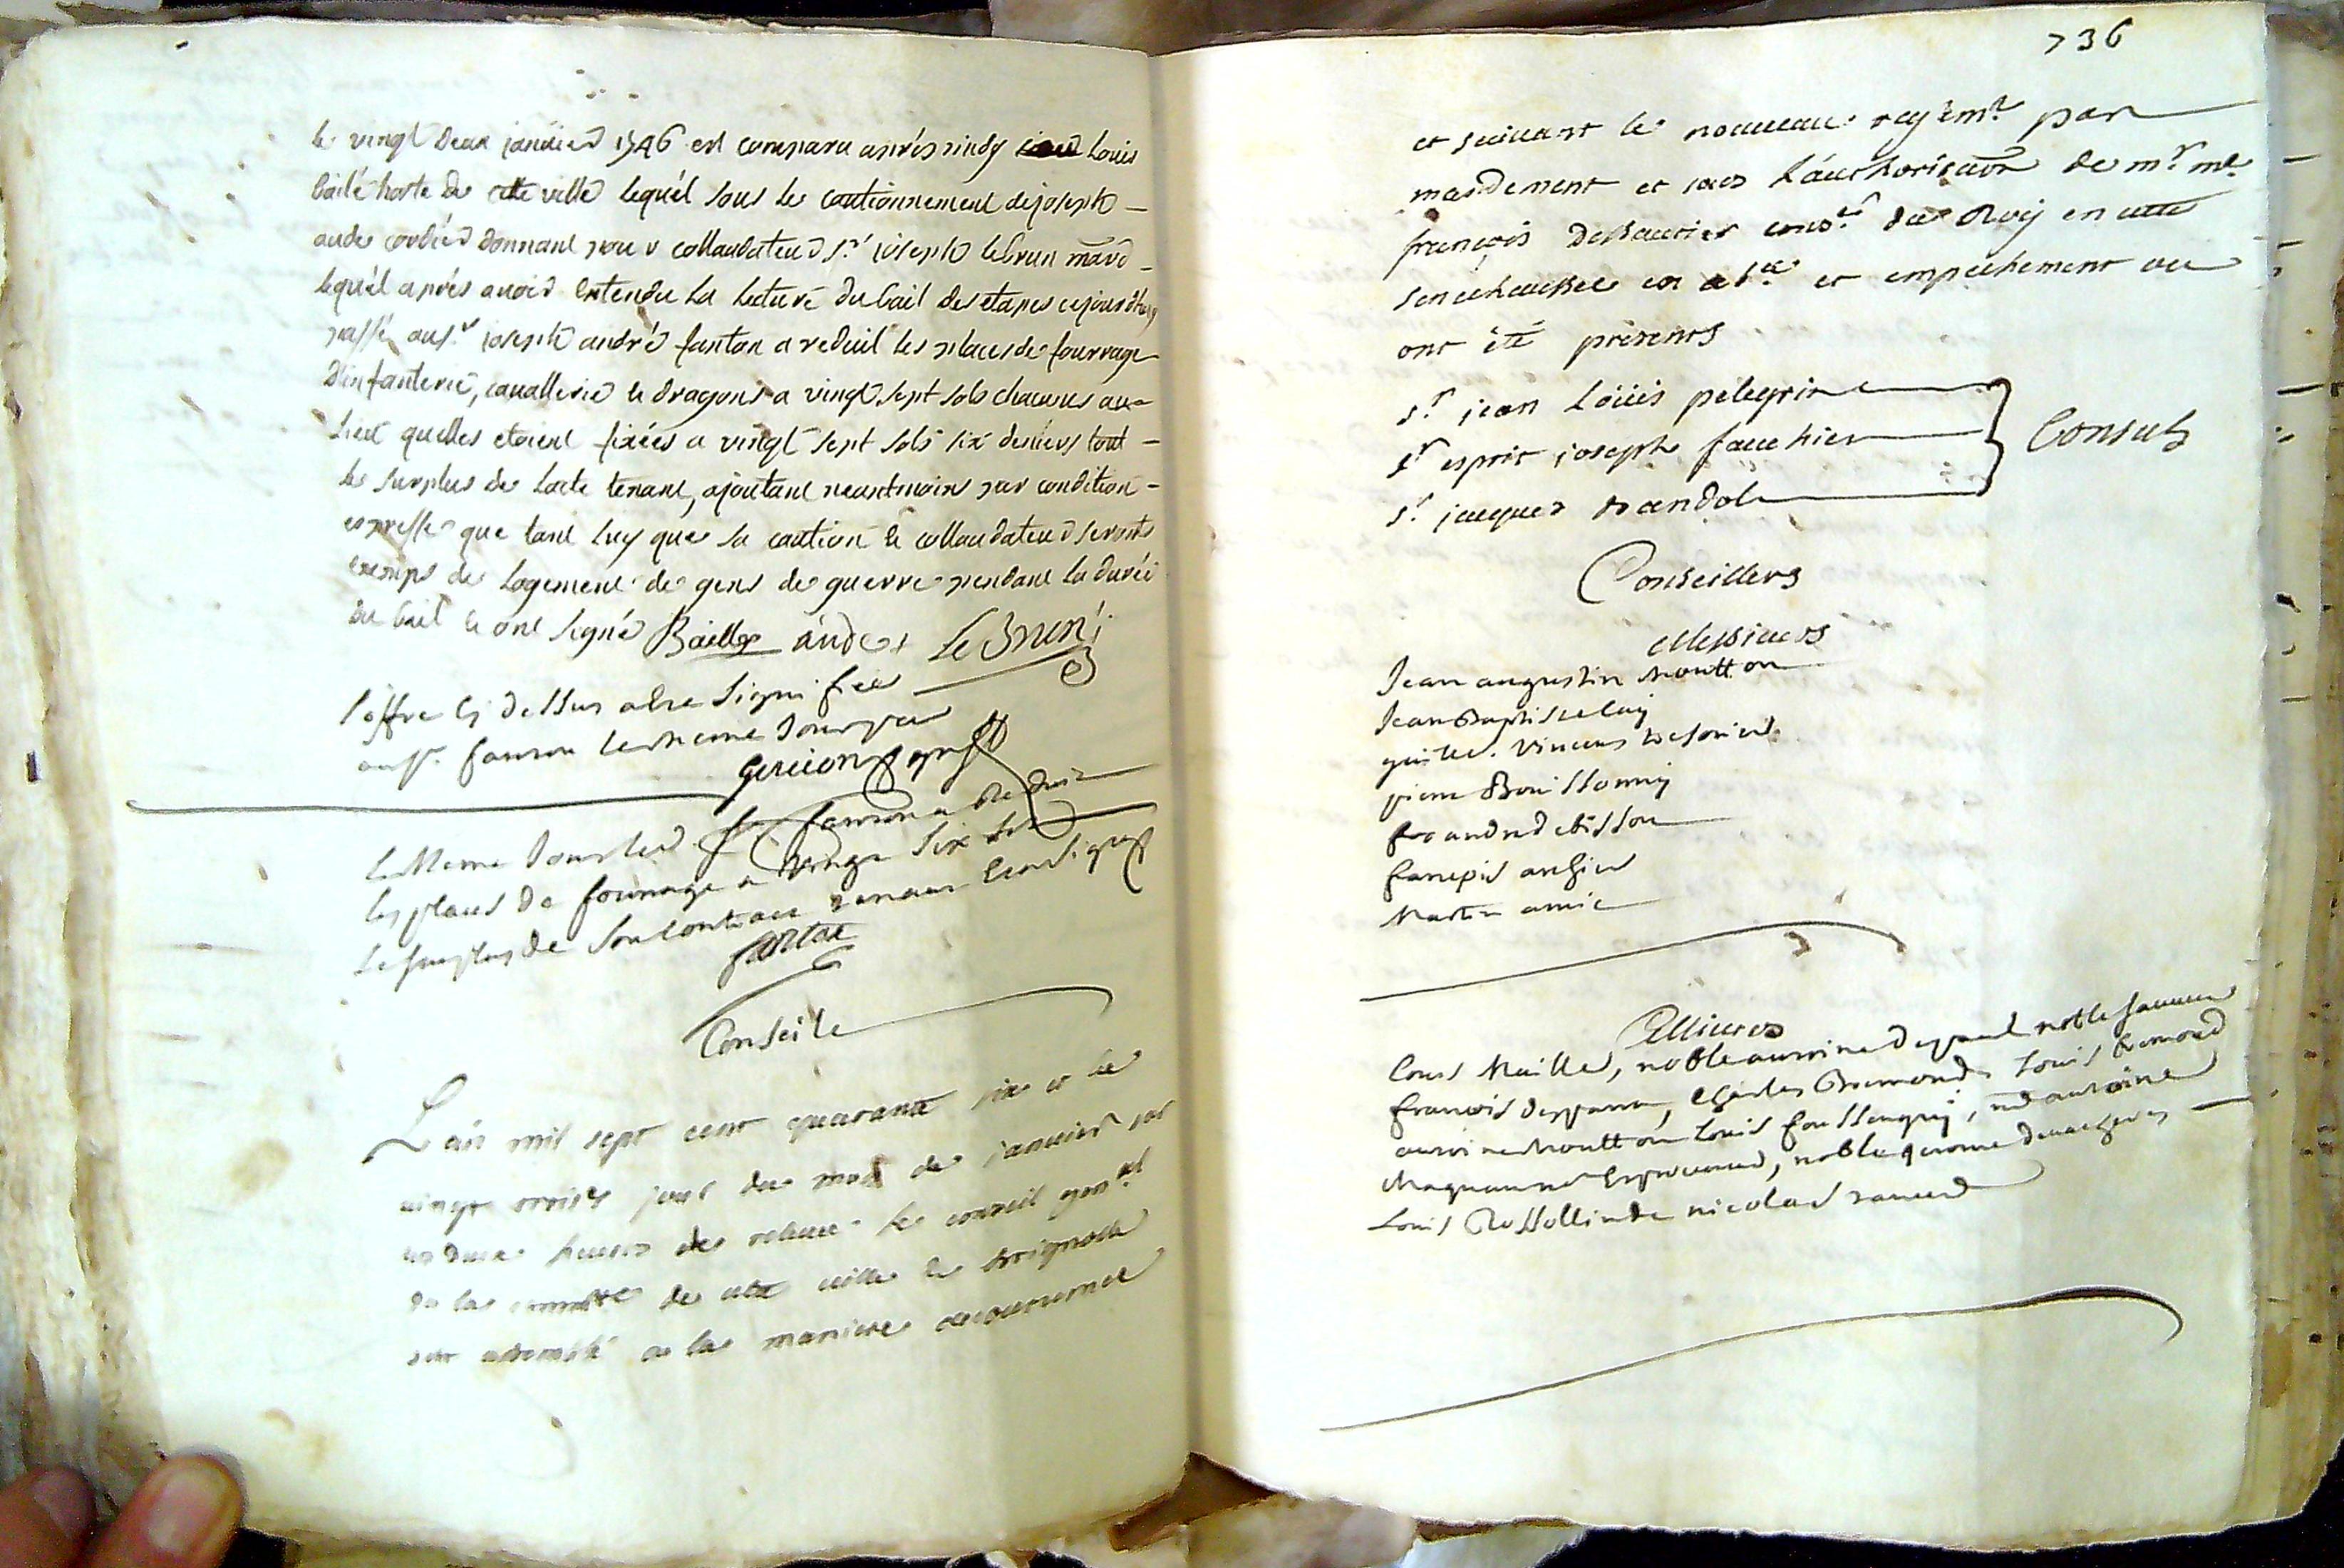 le vingt deux janvier 1746 est comparu aprés midy Louis
bailé hoste de cette ville lequél sous le cautionnement de joseph
aude cordier donnant pour collaudateur sr. joseph lebrun mard
lequél aprés avoir entendu la lecture du bail des etapes cejourdhuy
passé au sr. joseph andré fanton a reduit les places de fourrage
dinfanterie, cavallerie & dragons a vingt sept sols chacunes au
lieu quelles etoient fixées a vingt sept sols six deniers tout
le surplus de lacte tenant, ajoutant neantmoins par condition
expresse que tant luy que sa caution & collaudateur seronts
exemps de logement de gens de guerre pendant la durée
du bail & ont signé Baille aude Le Brun
l'offre cy dessus a ete signifiée
au sr. fanton le meme jour par
le Meme jour led. sr. fanton a Reduit
les places de fourrage a vingt six sols
le surplus de son contract tenant & a signé
fanton
Conseil
L'an mil sept cent quarante six et le
vingt trois jour du mois de janvier sur
les deux heures de relevée le conseil genal
de la commté de cette ville de brignolle
sest assemblé a la maniere accoutumée
736
et suivant le nouveau reglemt par
mandement et sous l'authorisaon de mr. me.
françois dessaurier consr. du Roy en cette
senechaussée en absce et empechement ou
ont été presents
sr. jean Loüis pelegrin
sr esprit joseph fauchier
sr. jacques brandole
Consuls
Conseillers
Messieurs
Jean augustin Moutton
Jean Baptiste
guille. Vincens
pierre Bouissonny
françois
Martin amic
Messieurs
Louis Maille, noble
françois Louis
Moutton Louis
noble
Louis Rossollin nicolas